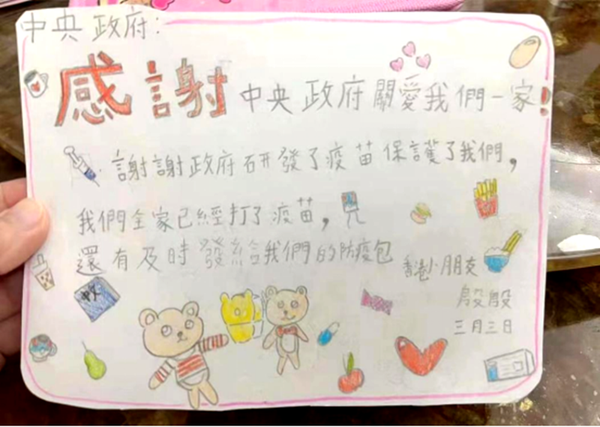 中央政府:
感謝中央政府關愛我們一家!
謝謝政府研發了疫苗保護了我們,
我們全家已經打了疫苗,
還有及時發給我們的防疫包
香港小朋友
殷殷
三月三日